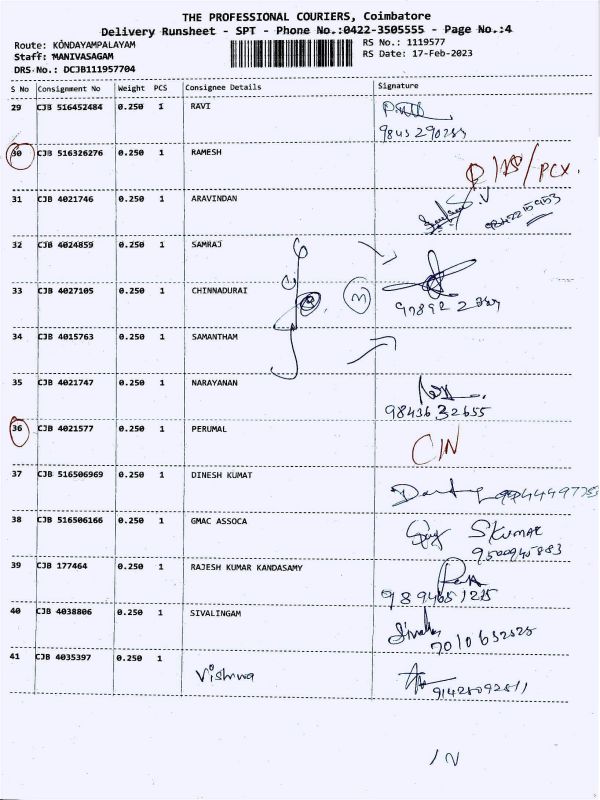 THE PROFESSIONAL COURIERS, Coimbatore
Delivery Runsheet - SPT - Phone No.:0422-3505555 - Page No.:4
Route: KONDAYAMPALAYAM RS No.: 1119577
Staff: MANIVASAGAM RS Date: 17-Feb-2023
DRS No.: DCJB111957704
S No Consignment No Weight PCS Consignee Details Signature
29 CJB 516452484 0.250 1 RAVI
30 CJB 516326276 0.250 1 RAMESH
31 CJB 4021746 0.250 1 ARAVINDAN
32 CJB 4024859 0.250 1 SAMRAJ
33 CJB 4027105 0.250 1 CHINNADURAI
34 CJB 4015763 0.250 1 SAMANTHAM
35 CJB 4021747 0.250 1 NARAYANAN
9843632655
36 CJB 4021577 0.250 1 PERUMAL
C/N
37 CJB 516506969 0.250 1 DINESH KUMAT
38 CJB 516506166 0.250 1 GMAC ASSOCA
S KUMAR
39 CJB 177464 0.250 1 RAJESH KUMAR KANDASAMY
40 CJB 4038806 0.250 1 SIVALINGAM
7010652525
41 CJB 4035397 0.250 1 Vishnva